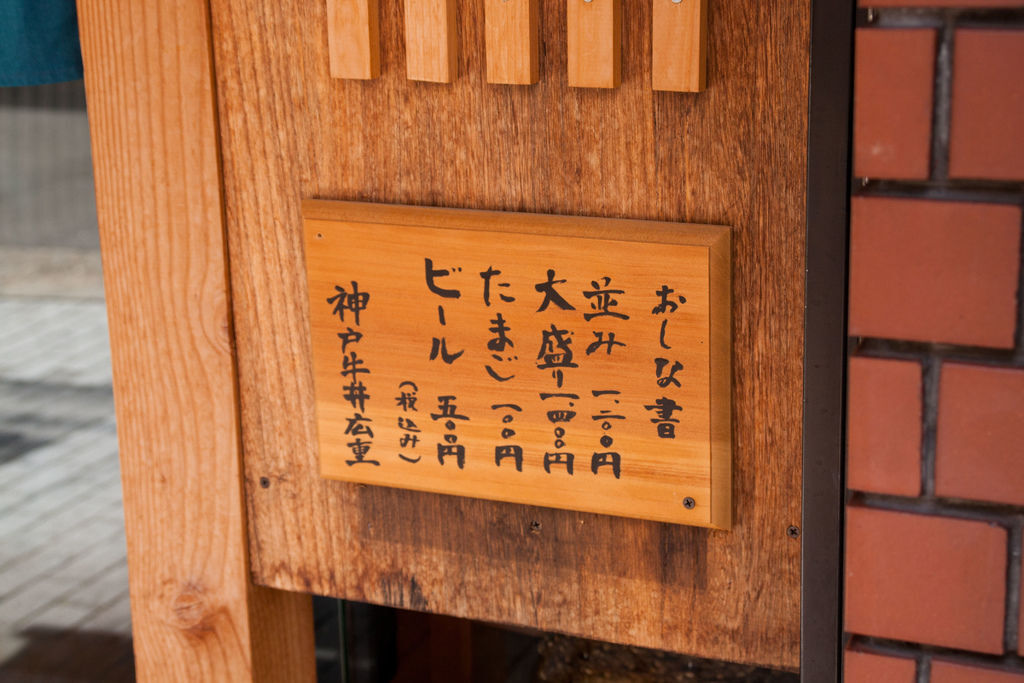 おしな書
並み 一、二〇〇円
大盛り 一、四〇〇円
たまご 一〇〇円
ビール 五〇〇円
(税込み)
神戸牛丼広重